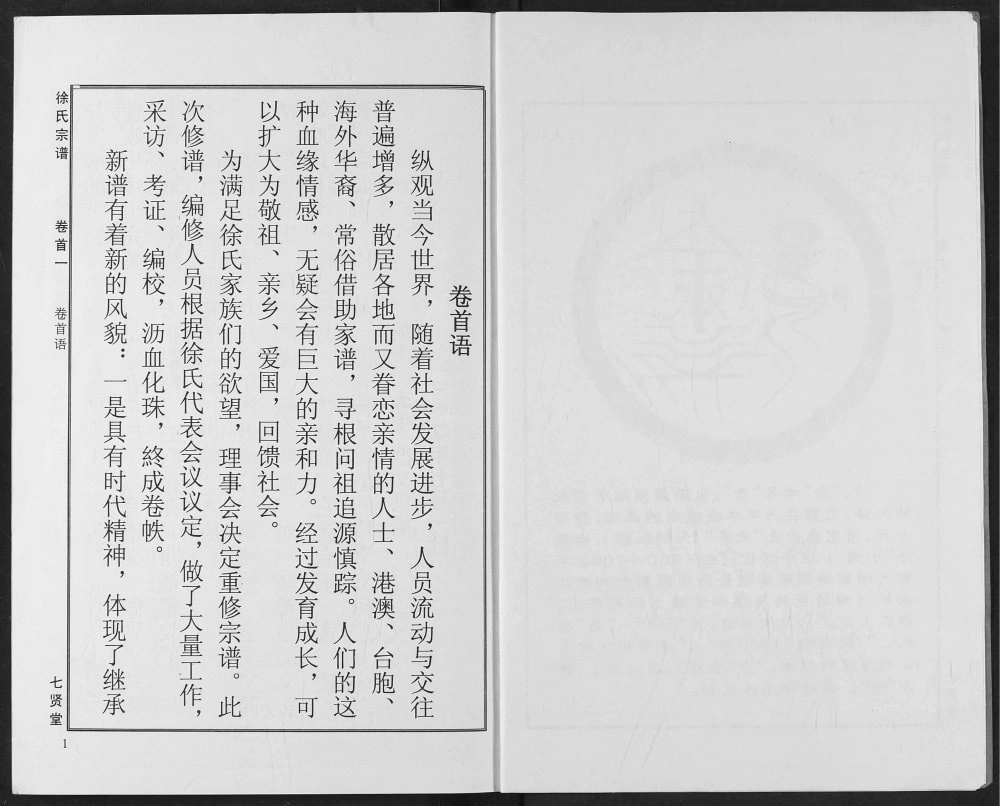 卷首语
纵观当今世界，随着社会发展进步，人员流动与交往
普遍增多，散居各地而又眷恋亲情的人士、港澳、台胞、
海外华裔、常俗借助家谱，寻根问祖追源慎踪。人们的这
种血缘情感，无疑会有巨大的亲和力。经过发育成长，可
以扩大为敬祖、亲乡、爱国，回馈社会。
为满足徐氏家族们的欲望，理事会决定重修宗谱。此
次修谱，编修人员根据徐氏代表会议议定，做了大量工作，
采访、考证、编校，沥血化珠，終成卷帙。
新谱有着新的风貌：一是具有时代精神，体现了继承
徐氏宗谱
卷首一
卷首语
七贤堂
1